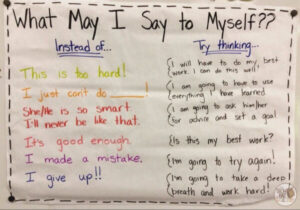 What May I Say to Myself??
Instead of...
Try thinking...
This is too hard!
{I will have to do my best
work. I can do this well
I just can't do ______!
{I am going to have to use
everything I have learned
She/He is so smart.
I'll never be like that.
{I am going to ask him/her
for advice and set a goal
It's good enough.
{Is this my best work?
I made a mistake.
{I'm going to try again!
I give up!!
{I'm going to take a deep
breath and work hard!